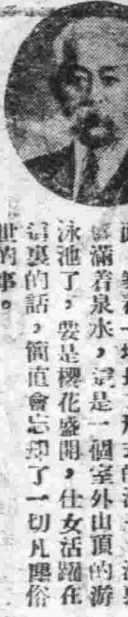 滿着泉水，這是一個室外山頂的游
泳池了，要是櫻花盛開，仕女活躍在
這裏的話，簡直會忘却了一切凡塵俗
世的事。